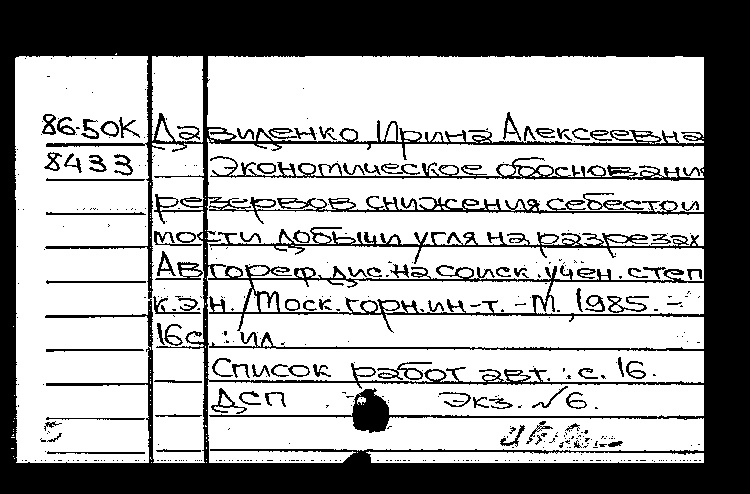 86-50К Давиденко, Ирина Алексеевна
8433 Экономическое обоснование
резервов снижения себестои
мости добычи угля на разрезах
Автореф. дис. на соиск. учен. степ
к.э.н. /Моск. горн. ин-т. - М., 1985. -
16с. : ил.
Список работ авт. : с. 16.
ДСП Экз. №6.
5